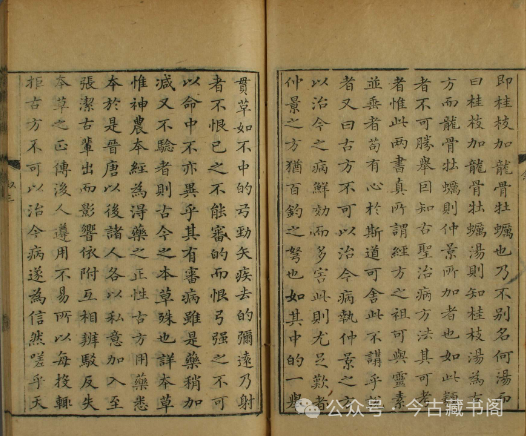 即桂枝加龍骨牡蠣也乃不别名何湯而
曰桂枝加龍骨牡蠣湯則知桂枝湯為古
方而龍骨牡蠣則仲景所加者也如此類
者不可勝舉因知古聖治病方法其可考
者惟此兩書真所謂經方之祖可與靈素
並垂者苟有心於斯道可舍此不講乎
者又曰古方不可以治今病執仲景之方
以治今之病鮮効而多害此則尤足歎者
仲景之方猶百鈞之弩也如其中的一舉
貫草如不中的弓勁矢疾去的彌遠乃射
者不恨己之不能審的而恨弓強之不可
以命中不亦異乎其有審病雖是藥稍加
減又不驗者則古今之本草殊也詳本草
惟神農本經為得藥之正性古方用藥悉
本於是晉唐以後諸人各以私意加入至
張潔古輩出而影響依附互相辨駁反失
本草之正傳後人遵用不易所以每投輒
拒古方不可以治今病遂為信然嗟乎天
公众号 · 今古藏书阁